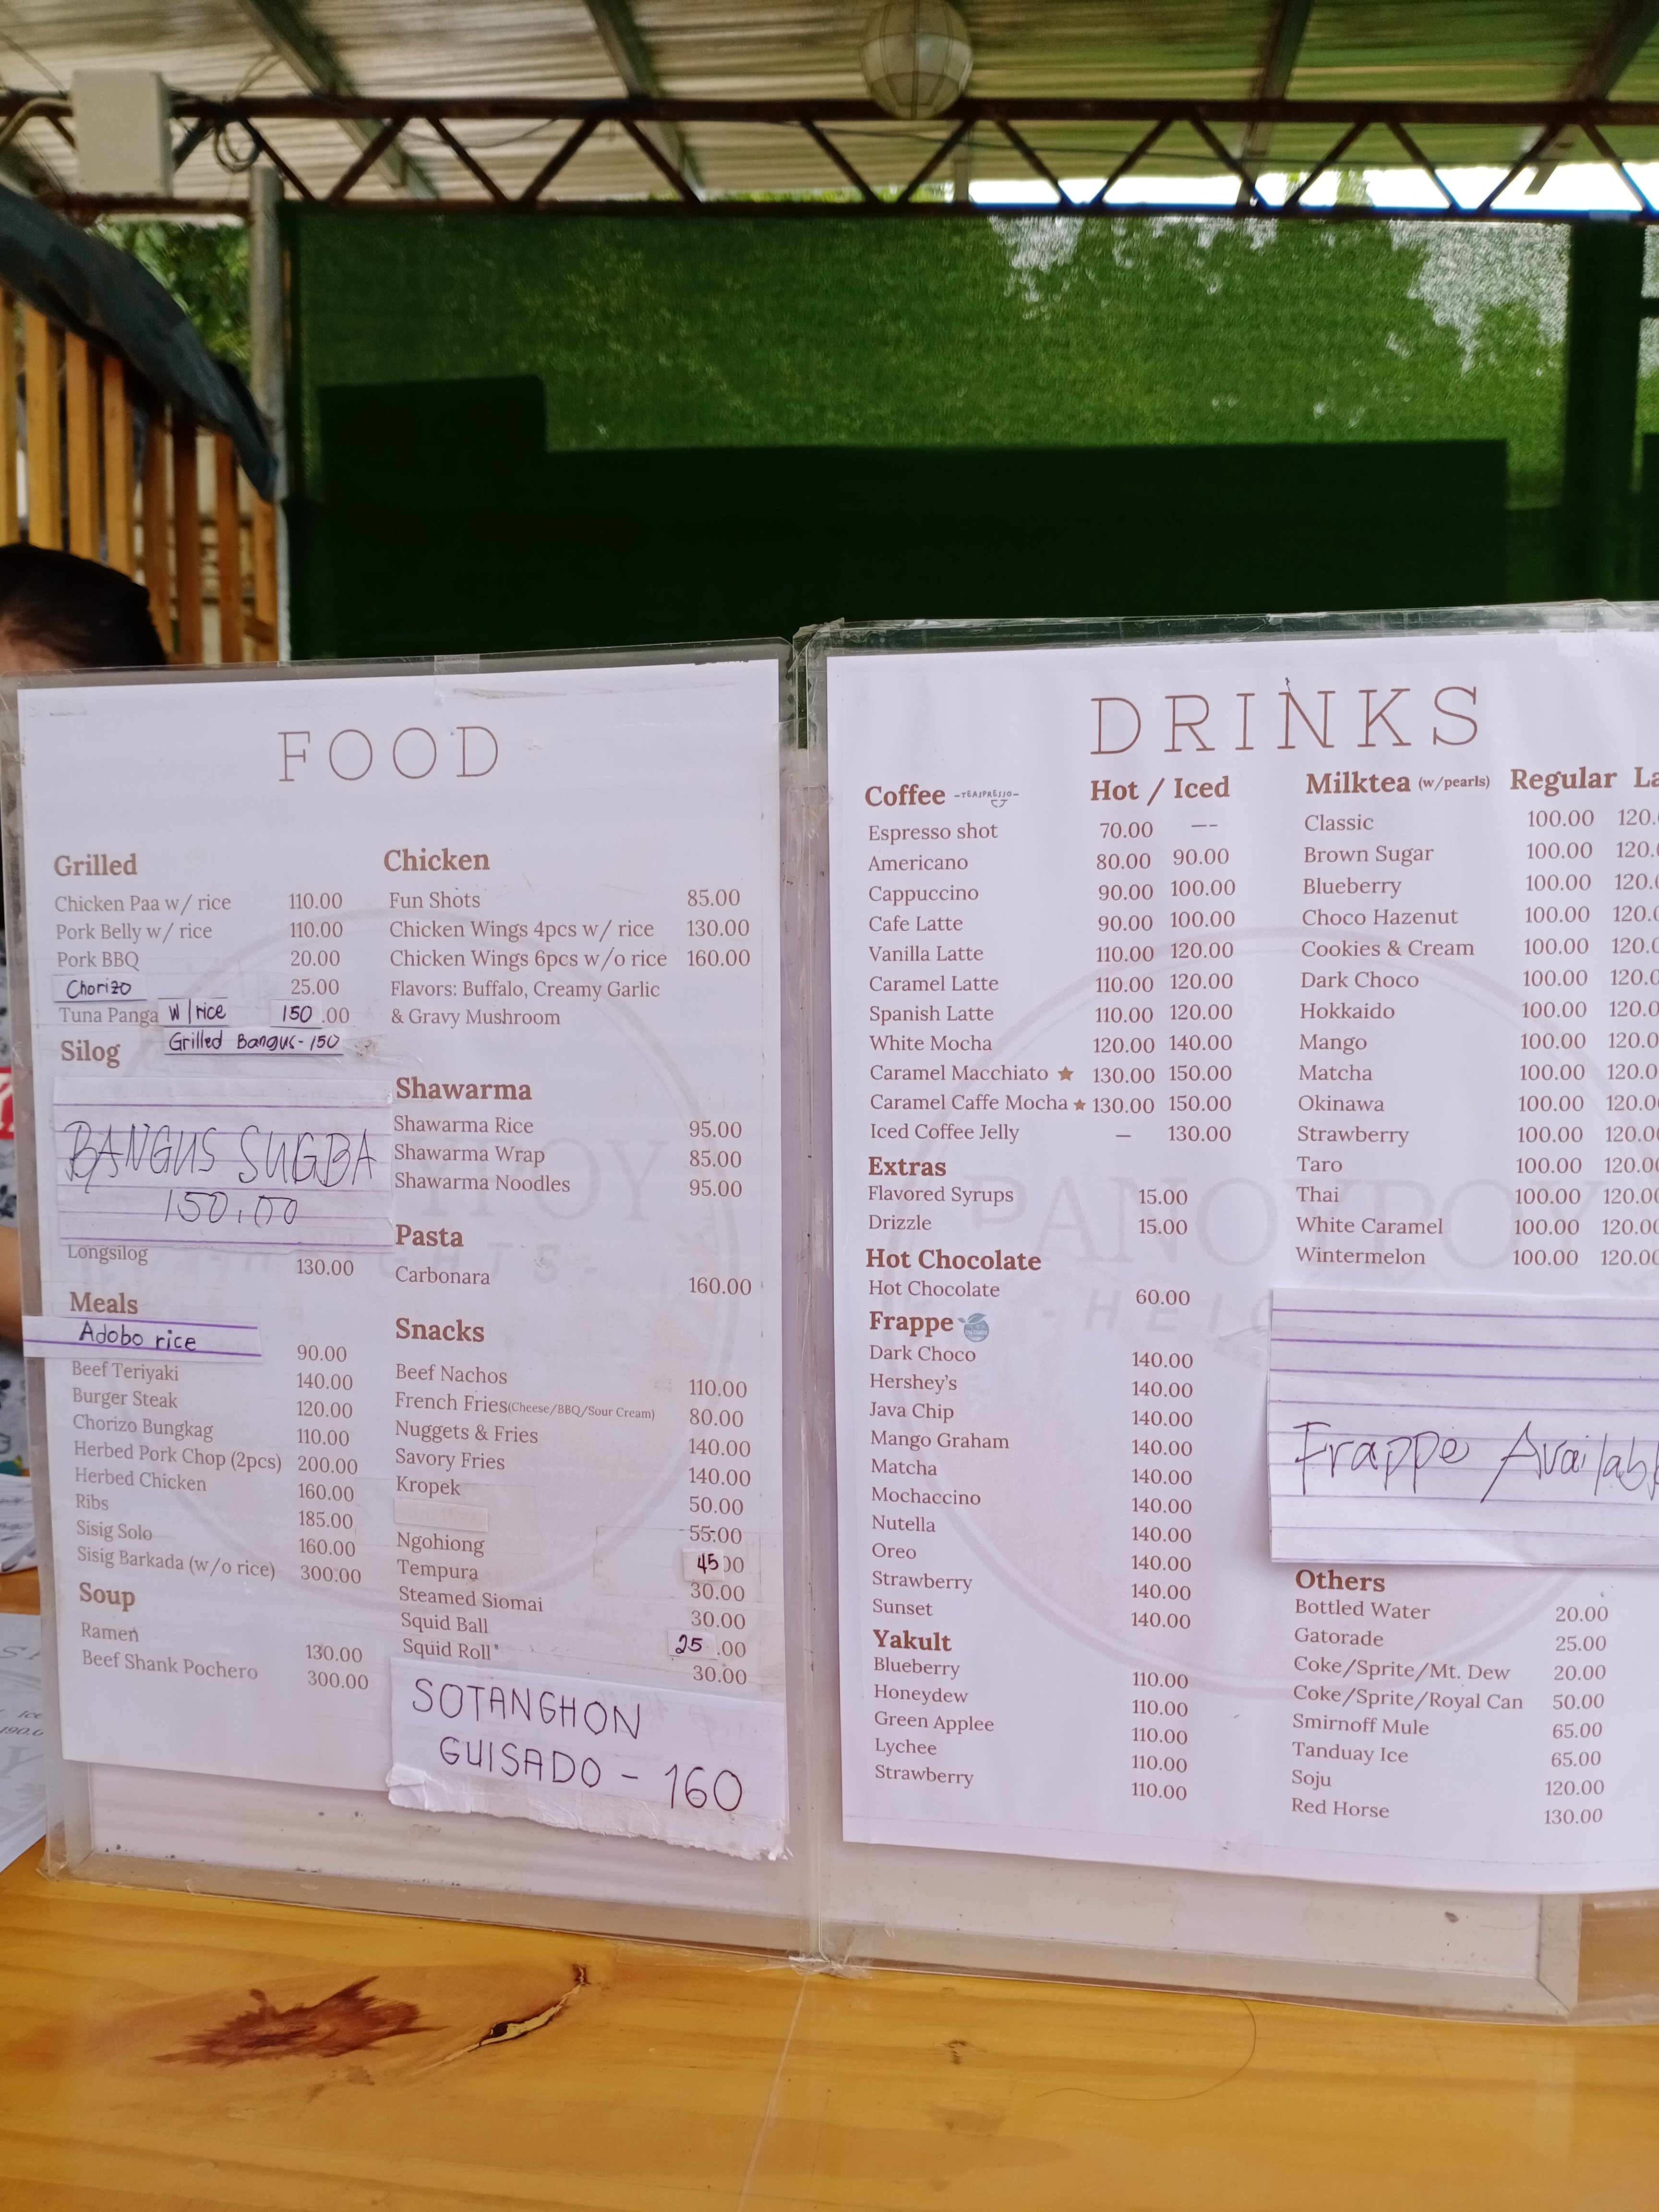 FOOD
Grilled
Chicken Paa w/ rice 110.00
Pork Belly w/ rice 110.00
Pork BBQ 20.00
Chorizo 25.00
Tuna Panga w/rice 150.00
Grilled Bangus-150
Silog
BANGUS SUGBA
150.00
Longsilog 130.00
Meals
Adobo rice 90.00
Beef Teriyaki 140.00
Burger Steak 120.00
Chorizo Bungkag 110.00
Herbed Pork Chop (2pcs) 200.00
Herbed Chicken 160.00
Ribs 185.00
Sisig Solo 160.00
Sisig Barkada (w/o rice) 300.00
Soup
Ramen 130.00
Beef Shank Pochero 300.00
Chicken
Fun Shots 85.00
Chicken Wings 4pcs w/ rice 130.00
Chicken Wings 6pcs w/o rice 160.00
Flavors: Buffalo, Creamy Garlic
& Gravy Mushroom
Shawarma
Shawarma Rice 95.00
Shawarma Wrap 85.00
Shawarma Noodles 95.00
Pasta
Carbonara 160.00
Snacks
Beef Nachos 110.00
French Fries(Cheese/BBQ/Sour Cream) 80.00
Nuggets & Fries 140.00
Savory Fries 140.00
Kropek 50.00
55.00
Ngohiong 4500
Tempura 30.00
Steamed Siomai 30.00
Squid Ball 25.00
Squid Roll 30.00
SOTANGHON
GUISADO - 160
DRINKS
Coffee -TEASPRESSO- Hot / Iced
Espresso shot 70.00 --
Americano 80.00 90.00
Cappuccino 90.00 100.00
Cafe Latte 90.00 100.00
Vanilla Latte 110.00 120.00
Caramel Latte 110.00 120.00
Spanish Latte 110.00 120.00
White Mocha 120.00 140.00
Caramel Macchiato ★ 130.00 150.00
Caramel Caffe Mocha ★ 130.00 150.00
Iced Coffee Jelly — 130.00
Extras
Flavored Syrups 15.00
Drizzle 15.00
Hot Chocolate
Hot Chocolate 60.00
Frappe
Dark Choco 140.00
Hershey's 140.00
Java Chip 140.00
Mango Graham 140.00
Matcha 140.00
Mochaccino 140.00
Nutella 140.00
Oreo 140.00
Strawberry 140.00
Sunset 140.00
Yakult
Blueberry 110.00
Honeydew 110.00
Green Applee 110.00
Lychee 110.00
Strawberry 110.00
Milktea (w/pearls) Regular La
Classic 100.00 120.
Brown Sugar 100.00 120.
Blueberry 100.00 120.
Choco Hazenut 100.00 120.
Cookies & Cream 100.00 120.0
Dark Choco 100.00 120.0
Hokkaido 100.00 120.0
Mango 100.00 120.0
Matcha 100.00 120.0
Okinawa 100.00 120.0
Strawberry 100.00 120.0
Taro 100.00 120.00
Thai 100.00 120.00
White Caramel 100.00 120.00
Wintermelon 100.00 120.00
Frappe Availab
Others
Bottled Water 20.00
Gatorade 25.00
Coke/Sprite/Mt. Dew 20.00
Coke/Sprite/Royal Can 50.00
Smirnoff Mule 65.00
Tanduay Ice 65.00
Soju 120.00
Red Horse 130.00
PANOYPOY